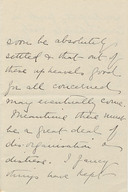 soon be absolutely
settled or that out of
these upheavals good
for all concerned
may eventually come.
Meantime there must
be a great deal of
disorganisation &
distress. I fancy
things have kept